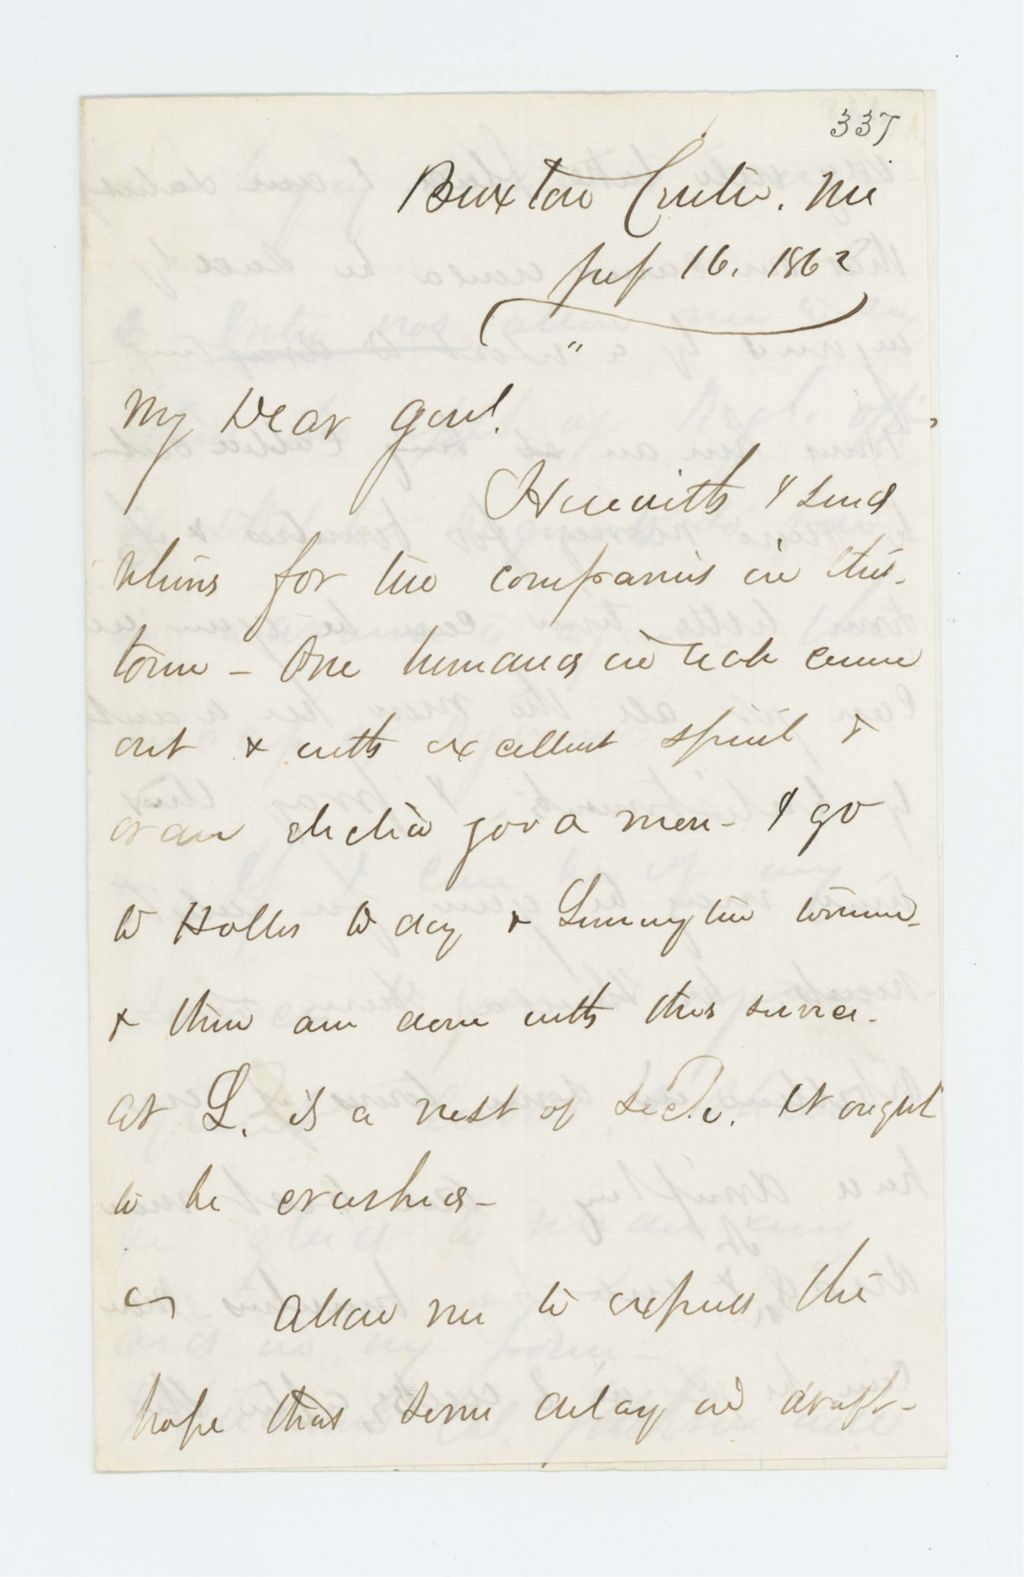 337
Buxton Center. Me
Sep 16. 1862
"
My Dear Genl.
Herewith I send
returns for two companies in this
town – One hundred in each came
out & with excellent spirit &
order elected good men – I go
to Hollis to day & Limington tomorrow
& then am done with this service.
At L. is a nest of It ought
to be crushed –
Allow me to express the
hope that some delay in draft-